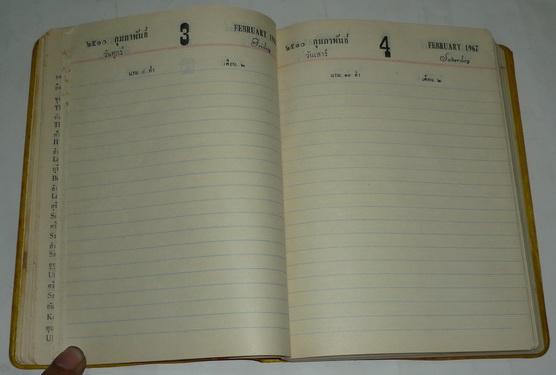 ๒๕๑๐ กุมภาพันธ์ 3 FEBRUARY 196
วันศุกร์ Friday
แรม ๙ ค่ำ เดือน ๒
๒๕๑๐ กุมภาพันธ์ 4 FEBRUARY 1967
วันเสาร์ Saturday
แรม ๑๐ ค่ำ เดือน ๒